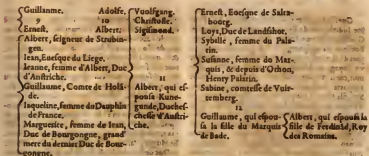 Guillanme. Adolfe.
9 10
Ernest. Albert.
Albert, seigneur de Strubin-
gen.
Iean, Euesque du Liege.
Ieanne, femme d'Albert, Duc
d'Anstriche.
Guillaume, Comte de Holã-
de.
Iaqueline, femme du Dauphin
de France.
Marguerite, femme de Iean,
Duc de Bourgongne, grand'
mere du dernier Duc de Bour-
gongne.
Vuolfgang.
Christofle.
Sigismond.
11
Albert, qui es-
pousa Kune-
gunde, Duchef-
chesse d'Austri-
che.
Ernest, Euesque de Salts-
bourg.
Loys, Duc de Landshot.
Sybille, femme du Pala-
tin.
Susanne, femme du Mar-
quis, & depuis d'Othon,
Henry Palatin.
Sabine, comtesse de Vuir-
temberg.
12
Guillaume, qui espou-
sa la fille du Marquis
de Bade.
Albert, qui espousa la
fille de Ferdinãd, Roy
des Romains.